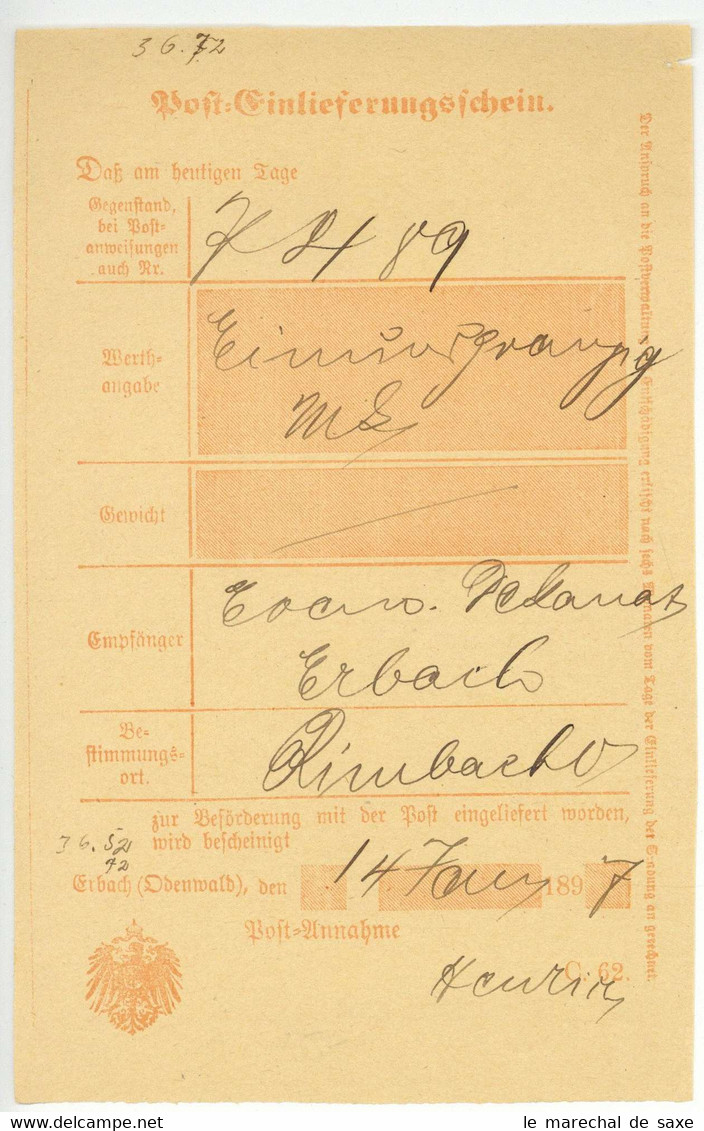 3 6. 72
Post-Einlieferungsschein.
Daß am heutigen Tage
Gegenstand,
bei Post-
anweisungen
auch Nr.
489
Werth-
angabe
Gewicht
Empfänger
Dekanat
Erbach
Be-
stimmungs-
ort.
Rimbach
zur Beförderung mit der Post eingeliefert worden,
wird bescheinigt
36. 52
72
Erbach (Odenwald), den 14 189 7
Post-Annahme
C. 62.
Der Anspruch an die Postverwaltung Entschädigung erlischt nach sechs Monaten vom Tage der Einlieferung der Sendung an gerechnet.
le marechal de saxe
www.delcampe.net